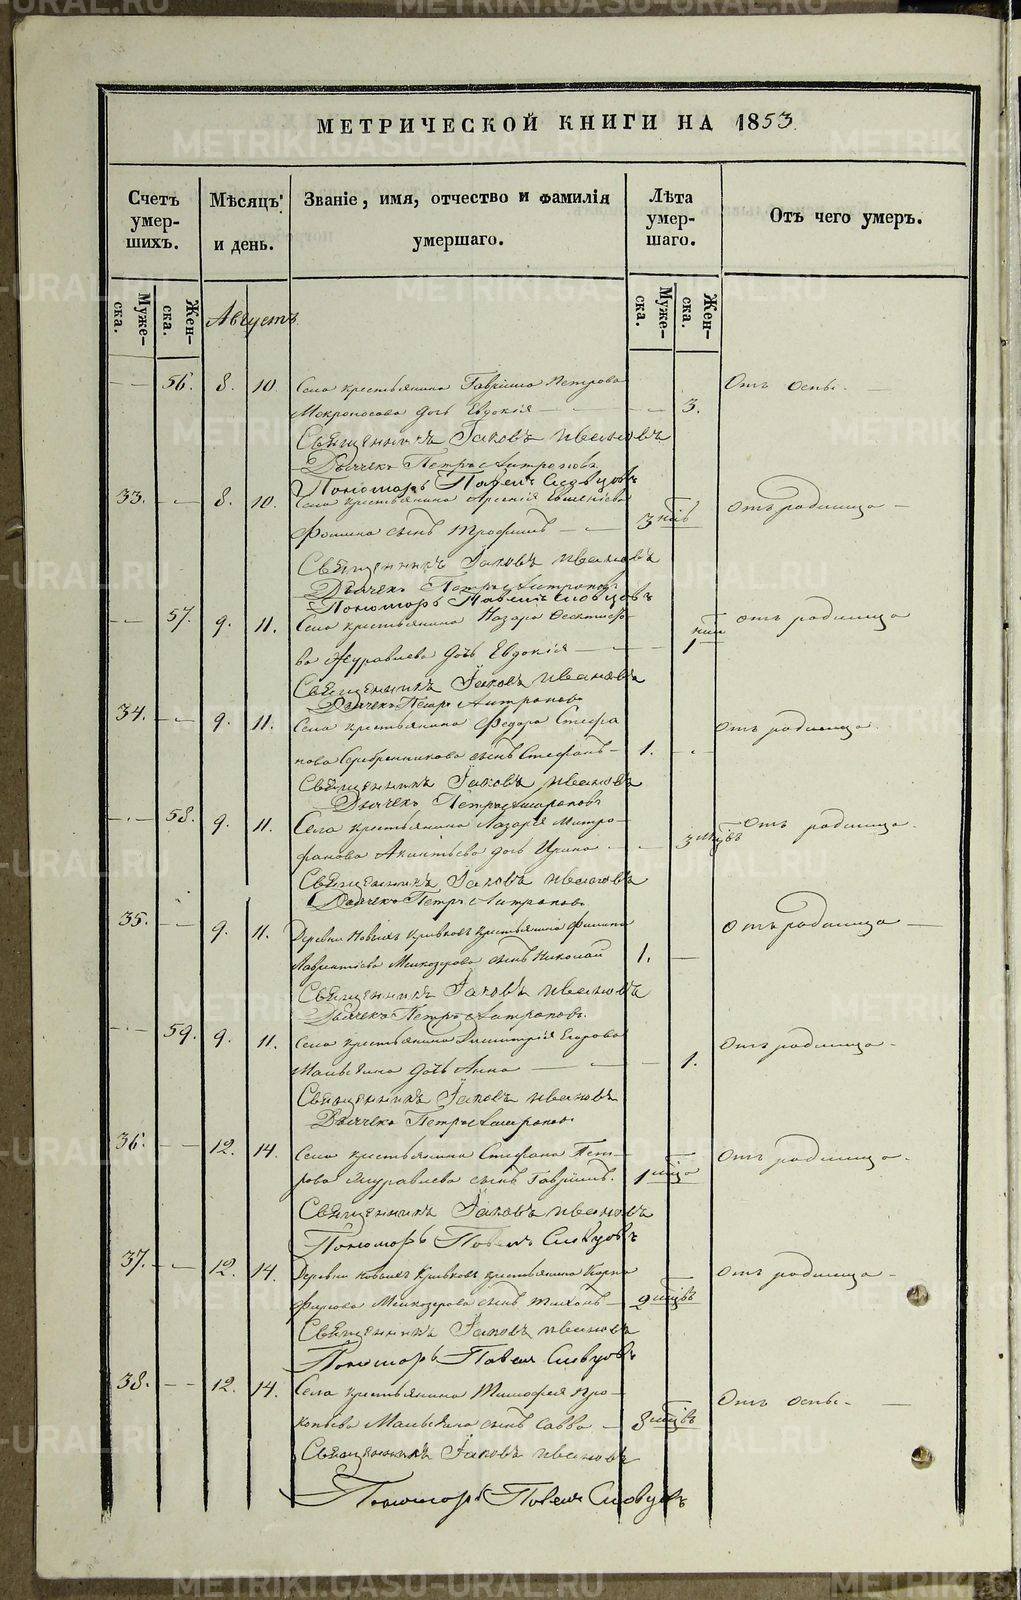 МЕТРИЧЕСКОЙ КНИГИ НА 1853.
Счетъ умершихъ.
Мѣсяцъ и день.
Званіе, имя, отчество и фамилія умершаго.
Лѣта умершаго.
Отъ чего умеръ.
Мужеска.
Женска.
Мужеска.
Женска.
Августъ.
56. 8. 10. Села крестьянина Гавріила Петрова Отъ оспы.
Мокроносова дочь Евдокія 3.
Священникъ Іаковъ Ивановъ
Дьячекъ Петръ Антроповъ
Пономарь Павелъ Словцовъ
33. 8. 10. Села крестьянина Арсенія Отъ родимца
Фомина сынъ Трофимъ 3 нед
Священникъ Іаковъ Ивановъ
Дьячекъ Петръ Антроповъ
Пономарь Павелъ Словцовъ
57. 9. 11. Села крестьянина Назара Отъ родимца
Журавлева дочь Евдокія 1
Священникъ Іаковъ Ивановъ
Дьячекъ Петръ Антроповъ
34. 9. 11. Села крестьянина Федора Стефа Отъ родимца.
нова Серебренникова сынъ Стефанъ 1.
Священникъ Іаковъ Ивановъ
Дьячекъ Петръ Антроповъ
58. 9. 11. Села крестьянина Лазаря Митро- Отъ родимца.
фанова дочь Ирина 3 мцвъ
Священникъ Іаковъ Ивановъ
Дьячекъ Петръ Антроповъ
35. 9. 11. Деревни Новыхъ Кривковъ крестьянина Филипа Отъ родимца
Лаврентіева Мелкозерова сынъ Николай 1.
Священникъ Іаковъ Ивановъ
Дьячекъ Петръ Антроповъ.
59. 9. 11. Села крестьянина Димитрія Егорова Отъ родимца.
Малыгина дочь Анна 1.
Священникъ Іаковъ Ивановъ
Дьячекъ Петръ Антроповъ
36. 12. 14. Села крестьянина Стефана Пет- Отъ родимца.
рова Журавлева сынъ Гавріилъ. 1 мца
Священникъ Іаковъ Ивановъ
Пономарь Павелъ Словцовъ
37. 12. 14. Деревни Новыхъ Кривковъ крестьянина Карпа Отъ родимца
Мелкозерова сынъ Тихонъ 2 мцвъ
Священникъ Іаковъ Ивановъ
Пономарь Павелъ Словцовъ
38. 12. 14. Села крестьянина Тимофея Про- Отъ оспы.
копьева Малыгина сынъ Савва 8 мцвъ
Священникъ Іаковъ Ивановъ
Пономарь Павелъ Словцовъ
METRIKI.GASU-URAL.RU